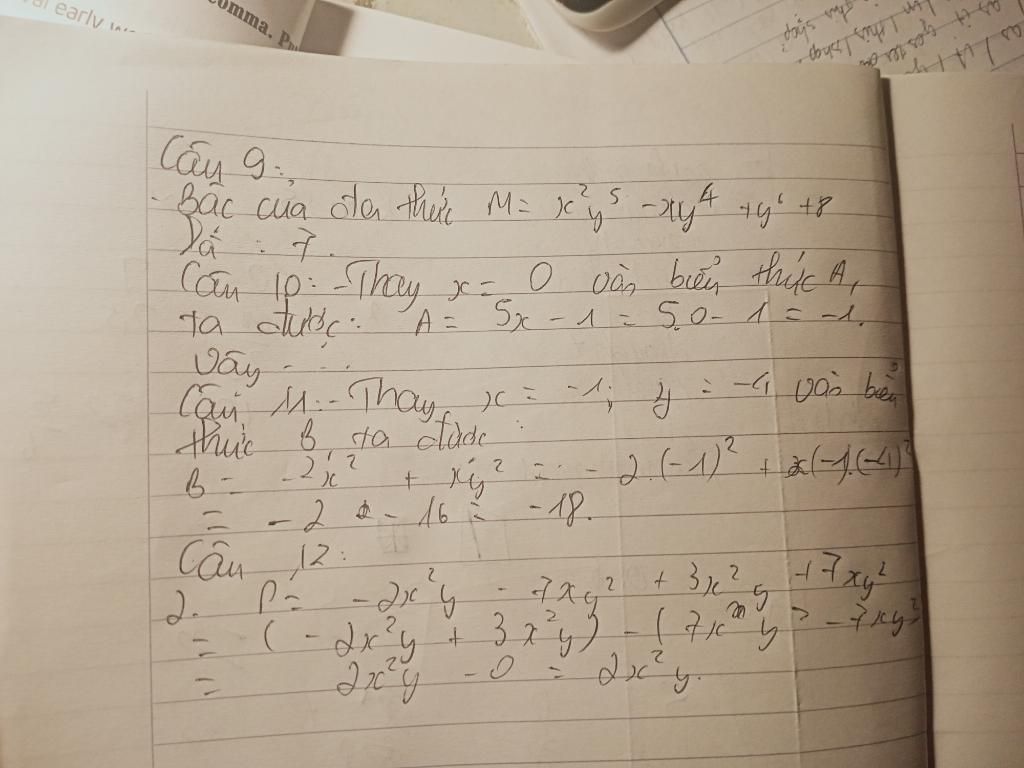 comma. Pu
val early w
Câu 9:
- Bậc của đa thức M = x²y⁵ - xy⁴ + y⁶ + 8
Là : 7.
Câu 10: - Thay x = 0 vào biểu thức A,
ta được: A = 5x - 1 = 5.0 - 1 = -1.
Vậy ....
Câu 11: - Thay x = -1; y = -4 vào biểu
thức B ta được:
B = -2x² + xy² = -2.(-1)² + (-1).(-4)²
= -2 - 16 = -18.
Câu 12:
2. P = -2x²y - 7xy² + 3x²y + 7xy²
= (-2x²y + 3x²y) - (7x y² - 7xy²
= 2x²y - 0 = 2x²y.